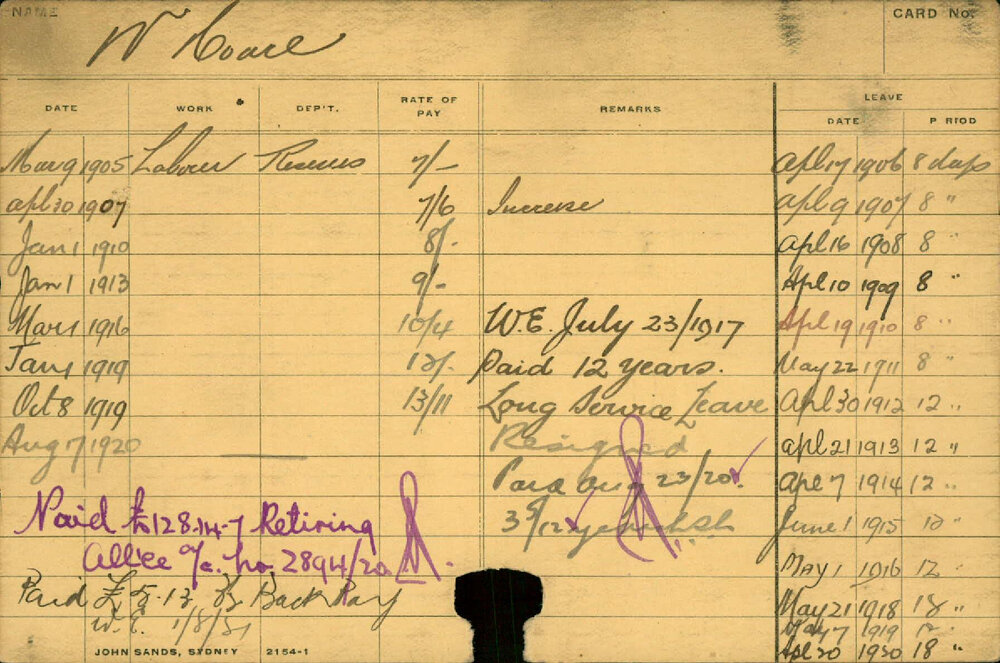 NAME
W Hoare
CARD No.
DATE WORK DEP'T. RATE OF PAY REMARKS LEAVE
DATE PERIOD
Mar 9 1905 Labour Reserves 7/- Apl 17 1906 8 days
Apl 30 1907 7/6 Increase Apl 9 1907 8 "
Jan 1 1910 8/- Apl 16 1908 8
Jan 1 1913 9/- Apl 10 1909 8 "
Mar 1 1916 10/4 W.E. July 23/1917 Apl 19 1910 8 "
Jan 1 1919 12/- Paid 12 years. May 22 1911 8 "
Oct 8 1919 13/11 Long Service Leave Apl 30 1912 12 "
Aug 7 1920 Resigned Apl 21 1913 12 "
Paid Aug 23/20 Apl 7 1914 12 "
Paid £128.14.7 Retiring 3 /12 June 1 1915 12 "
Allce a/c. No. 2894/20
May 1 1916 12 "
Paid £ Back Pay May 21 1918 "
W.E. 1/8/ May 7 1919
Apl 20 1920 18 "
JOHN SANDS, SYDNEY 2154-1